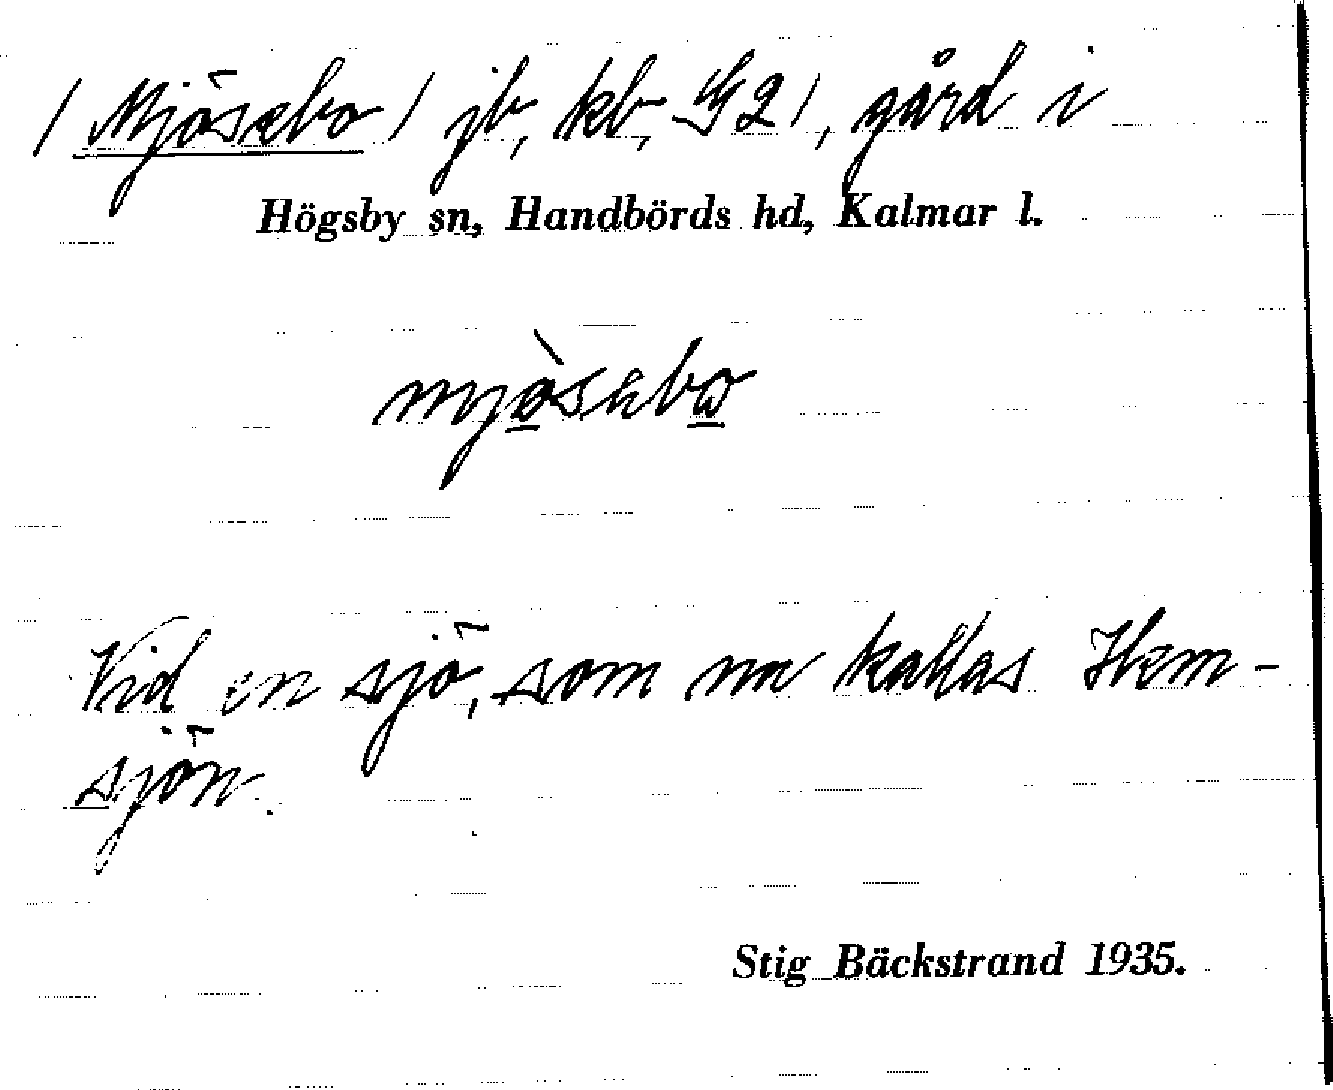 / Mjösebo / jb, kb, G2/, gård i
Högsby sn, Handbörds hd, Kalmar l.
Vid en sjö, som nu kallas Hem-
sjön.
Stig Bäckstrand 1935.